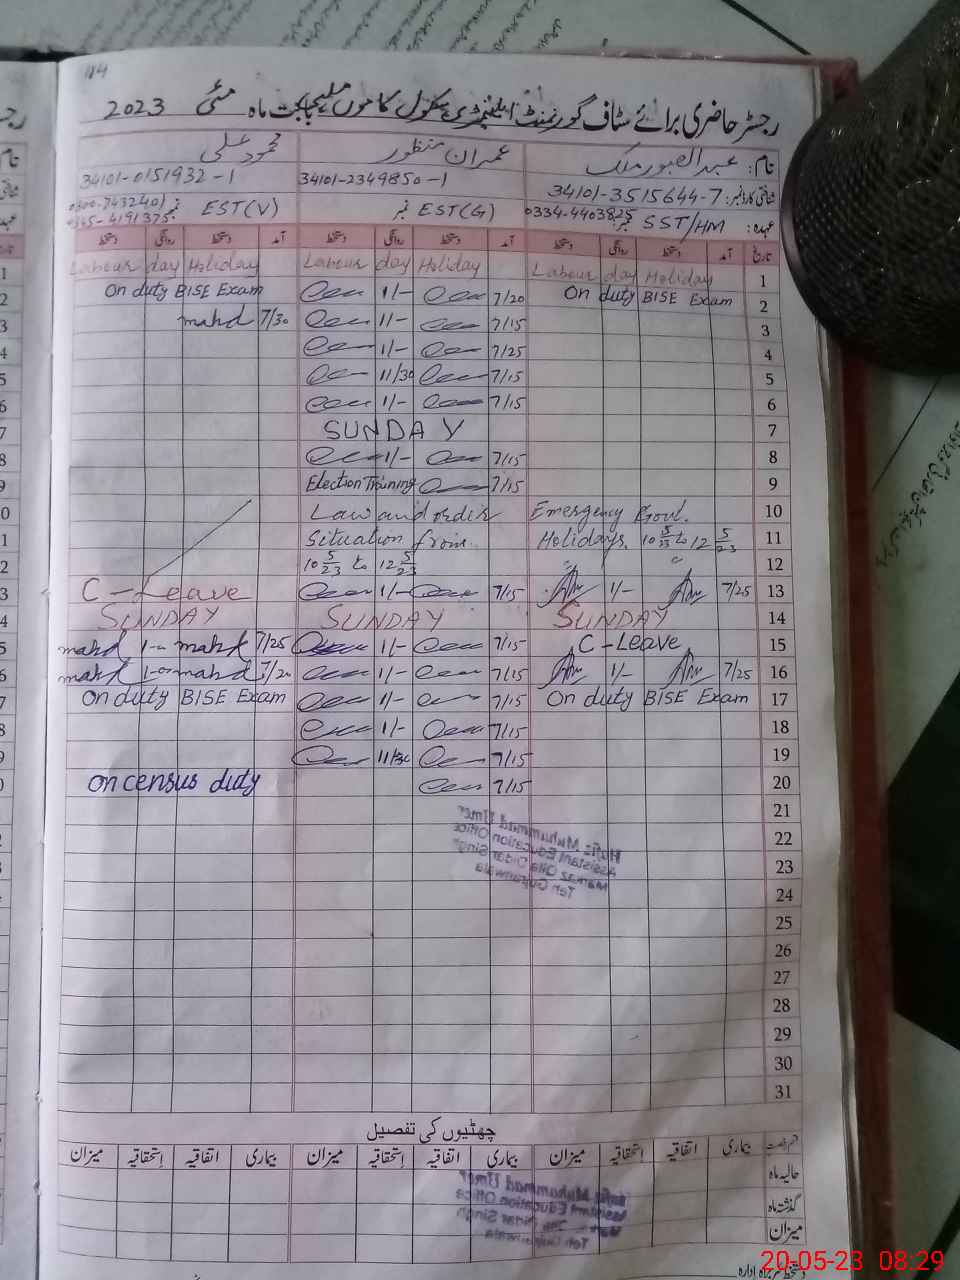 114
رجسٹر حاضری برائے سٹاف گورنمنٹ ایلیمنٹری سکول کاموں ملہی بابت ماہ مئی 2023
نام: عبدالصبور ملک عمران منظور محمود علی
شناختی کارڈ نمبر: 34101-3515644-7 34101-2349850-1 34101-0151932-1
عہدہ: SST/HM نمبر 0334-4403825 EST(G) نمبر EST(V) نمبر
0345-4191375
تاریخ آمد دستخط روانگی دستخط آمد دستخط روانگی دستخط آمد دستخط روانگی دستخط
Labour day Holiday Labour day Holiday Labour day Holiday 1
On duty BISE Exam 1/- 7/20 On duty BISE Exam 2
mahd 7/30 1/- 7/15 3
1/- 7/25 4
11/30 7/15 5
1/- 7/15 6
SUNDAY 7
1/- 7/15 8
Election Training 7/15 9
Law and order Emergency Govt. 10
Situation from Holidays. 10 5/23 to 12 5/23 11
10 5/23 to 12 5/23 12
C-Leave 1/- 7/15 1/- 7/25 13
SUNDAY SUNDAY SUNDAY 14
mahd 1- mahd 7/25 1/- 7/15 C-Leave 15
mahd 1- mahd 7/20 1/- 7/15 1/- 7/25 16
On duty BISE Exam 1/- 7/15 On duty BISE Exam 17
1/- 7/15 18
11/30 7/15 19
on census duty 7/15 20
21
22
23
24
25
26
27
28
29
30
31
Hafiz Muhammad Umer
Assistant Education Office
Markaz Qila Didar Singh
Teh Gujranwala
چھٹیوں کی تفصیل
بیماری اتفاقیہ استحقاقیہ میزان بیماری اتفاقیہ استحقاقیہ میزان بیماری اتفاقیہ استحقاقیہ میزان
حالیہ ماہ
گذشتہ ماہ
میزان
Hafiz Muhammad Umer
Assistant Education Office
Teh Gujranwala
دستخط سربراہ ادارہ
20-05-23 08:29